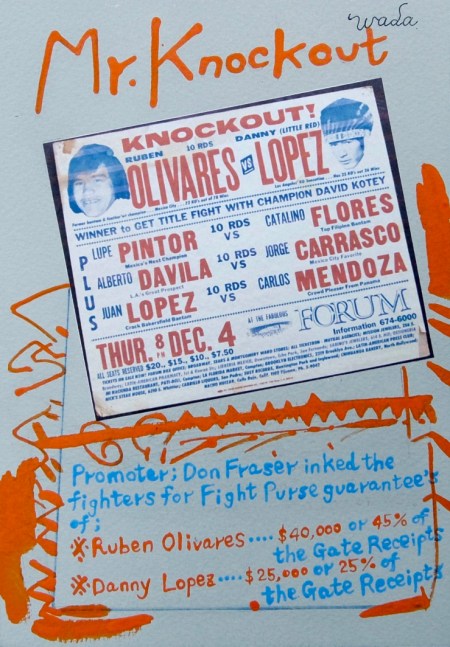 wada
Mr. Knockout
KNOCKOUT!
RUBEN 10 RDS DANNY (LITTLE RED)
OLIVARES VS LOPEZ
WINNER to GET TITLE FIGHT WITH CHAMPION DAVID KOTEY
PLUS
LUPE PINTOR 10 RDS VS CATALINO FLORES
Mexico's Next Champion Top Filipino Bantam
ALBERTO DAVILA 10 RDS VS JORGE CARRASCO
L.A.'s Great Prospect Mexico City Favorite
JUAN LOPEZ 10 RDS VS CARLOS MENDOZA
Crack Bakersfield Bantam Crowd Pleaser From Panama
THUR. 8 PM DEC. 4
AT THE FABULOUS FORUM
Information 674-6000
ALL SEATS RESERVED $20., $15., $10., $7.50
Promoter; Don Fraser inked the
fighters for Fight Purse guarantee's
of;
※Ruben Olivares.... $40,000 or 45% of
the Gate Receipts
※Danny Lopez.... $25,000 or 25% of
the Gate Receipts